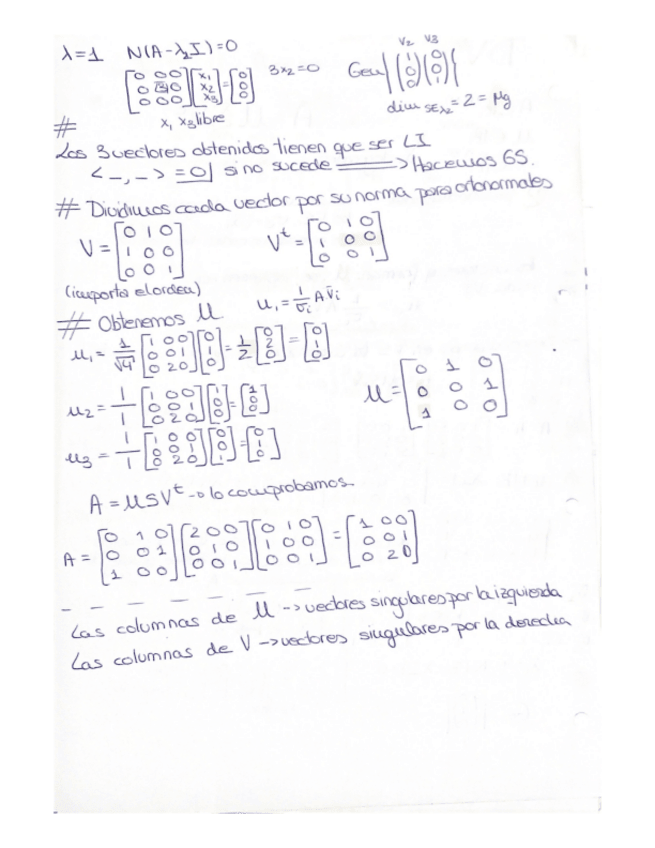 λ=1 N(A-λ₂I)=0
[0 0 0; 0 3 0; 0 0 0] [x₁; x₂; x₃] = [0; 0; 0] 3x₂=0 Gen{(1 0 0)(0 0 1)} V₂ V₃
x₁ x₃ libre dim SEλ₂=2=Mg
#
Los 3 vectores obtenidos tienen que ser LI
<_,_> =0 si no sucede ⟶ Hacemos GS.
# Dividimos cada vector por su norma para ortonormales
V = [0 1 0; 1 0 0; 0 0 1] Vᵗ = [0 1 0; 1 0 0; 0 0 1]
(importa el orden)
# Obtenemos U u₁ = 1/σᵢ A v̄ᵢ
u₁ = 1/√4 [1 0 0; 0 0 1; 0 2 0] [0; 1; 0] = 1/2 [0; 2; 0] = [0; 1; 0]
u₂ = 1/1 [1 0 0; 0 0 1; 0 2 0] [1; 0; 0] = [1; 0; 0] U = [0 1 0; 0 0 1; 1 0 0]
u₃ = 1/1 [1 0 0; 0 0 1; 0 2 0] = [0; 1; 0]
A = USVᵗ → lo comprobamos.
A = [0 1 0; 0 0 1; 1 0 0] [2 0 0; 0 1 0; 0 0 1] [0 1 0; 1 0 0; 0 0 1] = [1 0 0; 0 0 1; 0 2 0]
Las columnas de U → vectores singulares por la izquierda
Las columnas de V → vectores singulares por la derecha